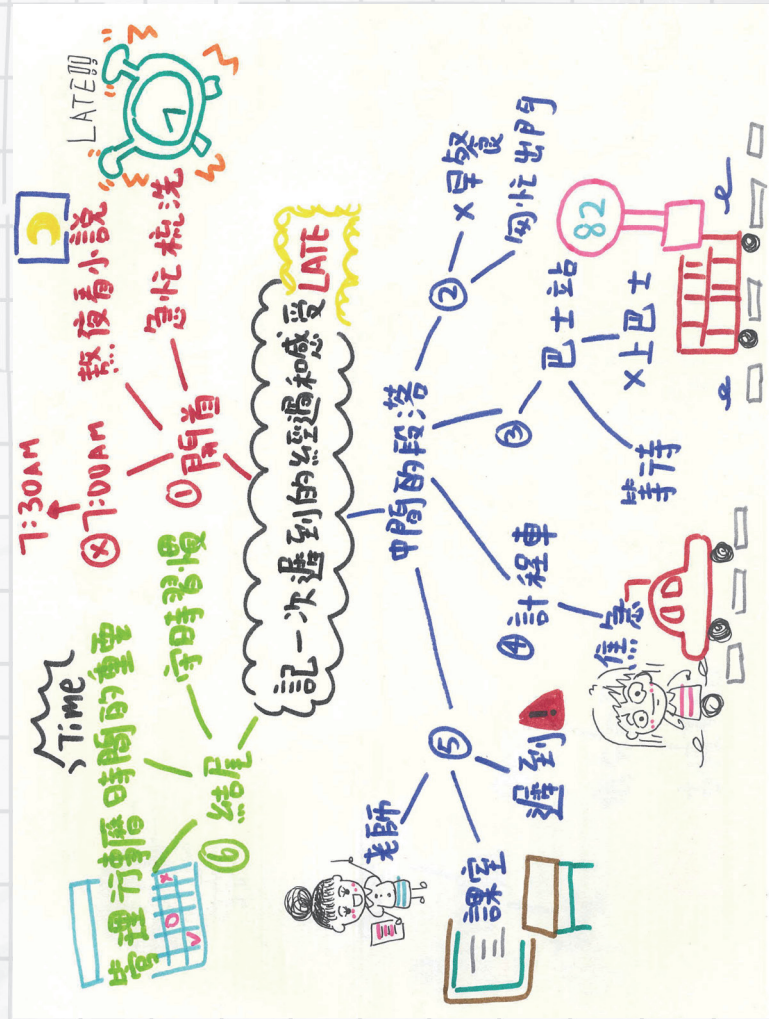 記一次遲到的經過和感受
LATE
①開首
⊗7:00AM
7:30AM
熬夜看小說
急忙梳洗
LATE!!!
中間的段落
②
x早餐
匆忙出門
③
巴士站
x上巴士
等待
82
④計程車
焦急
⑤
遲到
!
課室
老師
⑥結尾
守時習慣
時間的重要
Time
管理行事曆